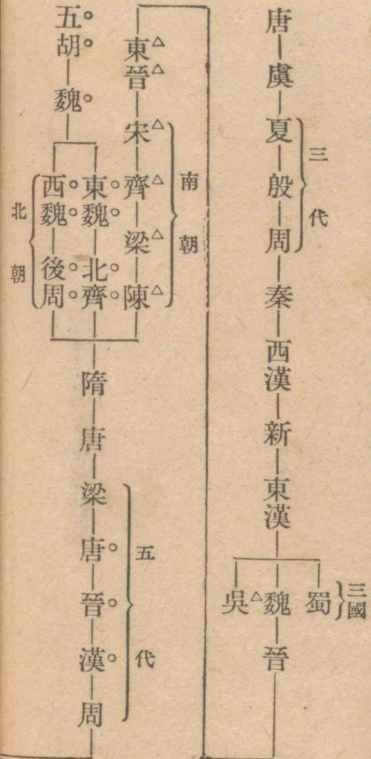 唐
虞
夏
殷
周
三代
秦
西漢
新
東漢
蜀
魏
吳△
三國
晉
東△晉△
宋△
齊△
梁△
陳△
南朝
五。胡。
魏。
東魏。
北。齊。
西魏。
後。周。
北朝
隋
唐
梁
唐。
晉。
漢。
周
五代